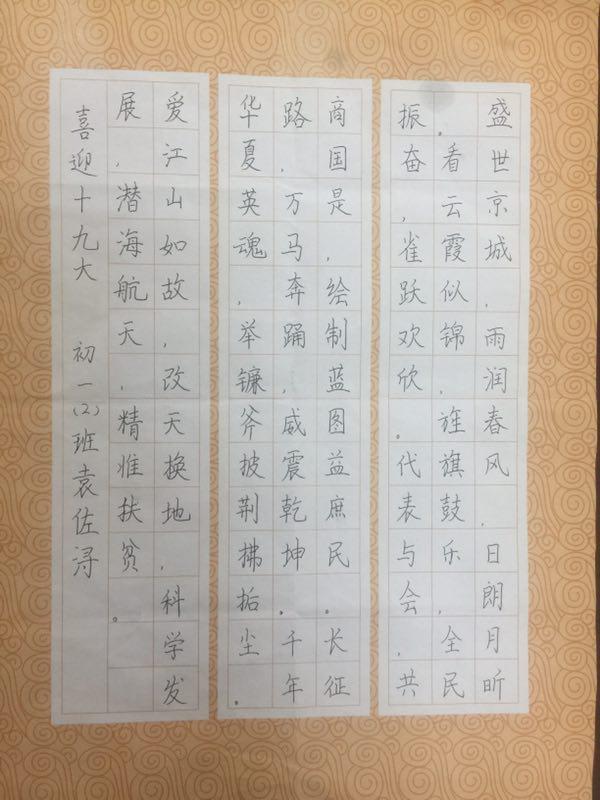 盛世京城，雨润春风，日朗月昕
。看云霞似锦，旌旗鼓乐，全民
振奋，雀跃欢欣。代表与会，共
商国是，绘制蓝图益庶民。长征
路，万马奔踊，威震乾坤。千年
华夏英魂，举镰斧披荆拂垢尘。
爱江山如故，改天换地，科学发
展，潜海航天，精准扶贫。
喜迎十九大 初一(2)班袁佐浔